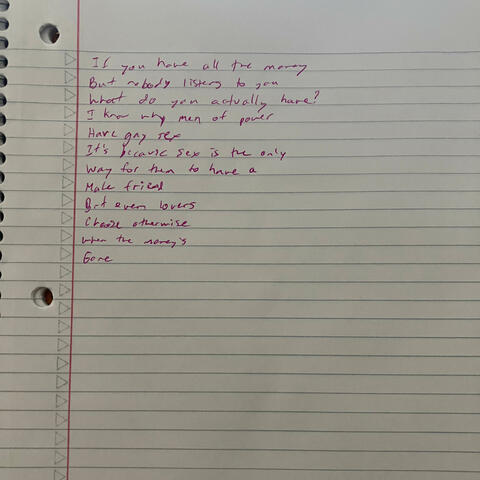 If you have all the money
But nobody listens to you
What do you actually have?
I know why men of power
Have gay sex
It's because sex is the only
way for them to have a
Male friend
But even lovers
Choose otherwise
when the money's
Gone